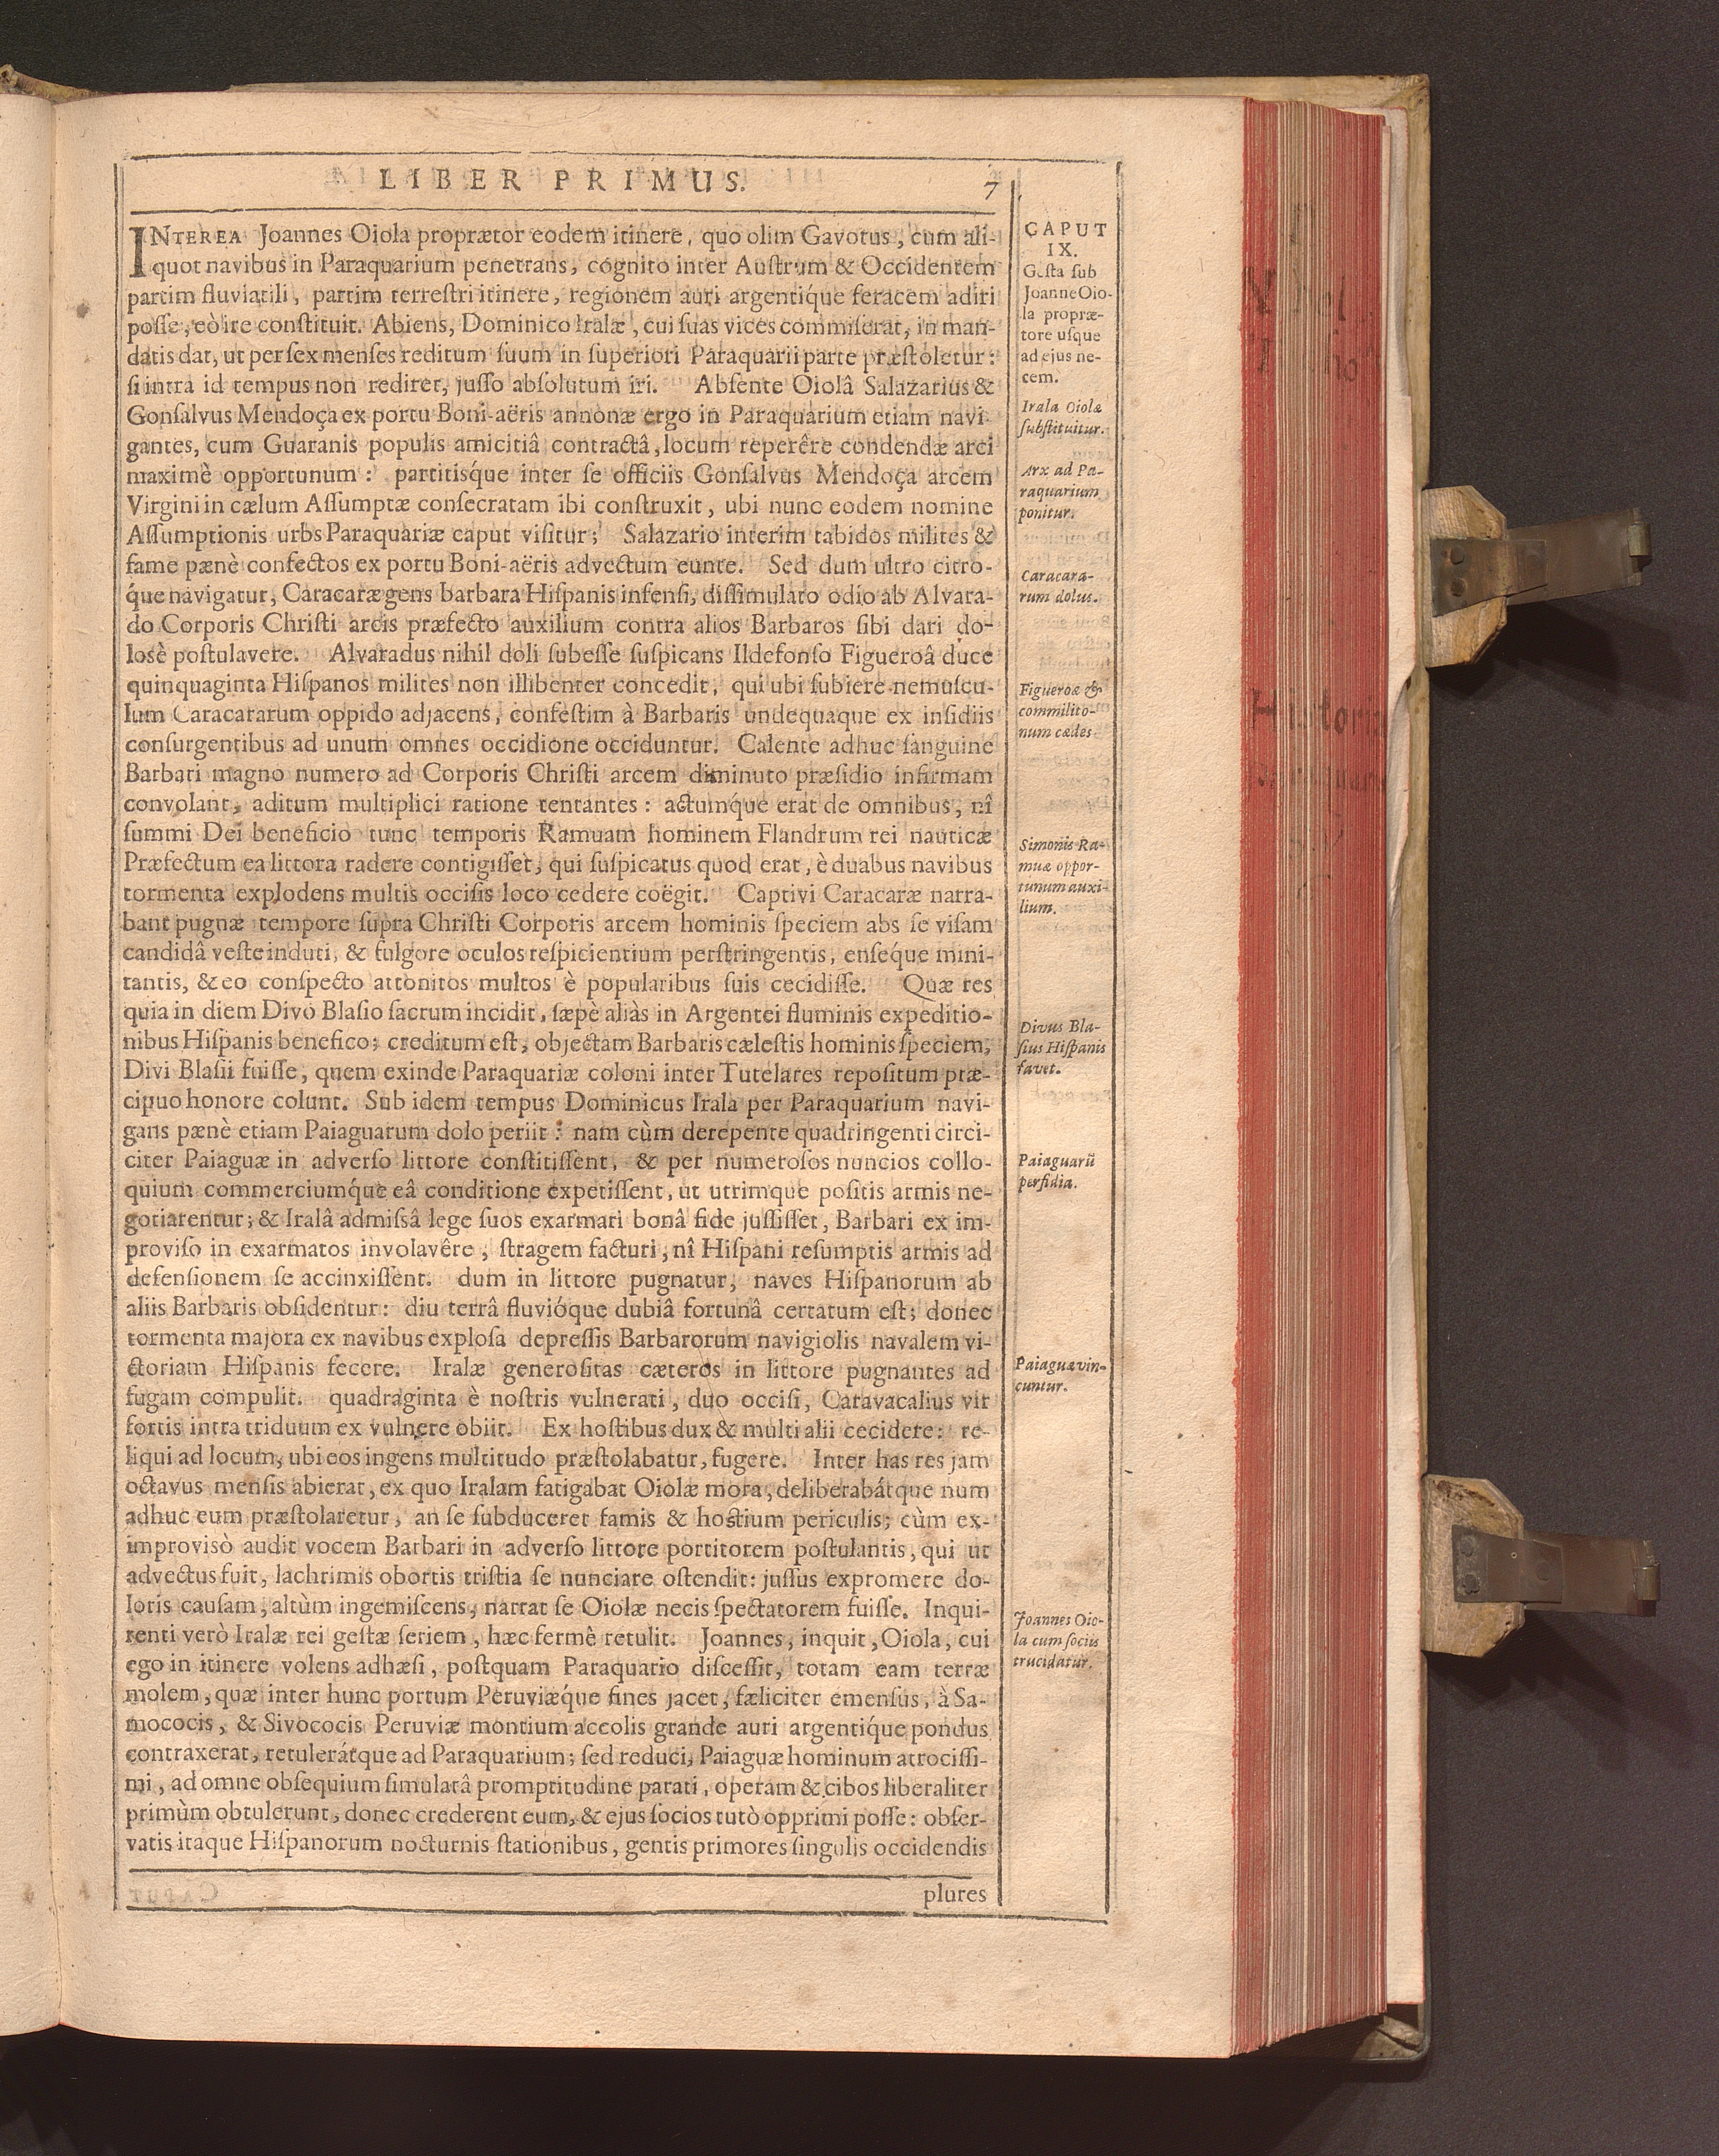 LIBER PRIMUS.
7
INTEREA Joannes Oiola proprætor eodem itinere, quo olim Gavotus, cum ali-
quot navibus in Paraquarium penetrans, cognito inter Auſtrum & Occidentem
partim fluviatili, partim terreſtri itinere, regionem auri argentíque feracem adiri
poſſe, eò ire conſtituit. Abiens, Dominico Iralæ, cui ſuas vices commiſerat, in man-
datis dat, ut per ſex menſes reditum ſuum in ſuperiori Paraquarii parte præſtoletur:
ſi intra id tempus non rediret, juſſo abſolutum iri. Abſente Oiolâ Salazarius &
Gonſalvus Mendoça ex portu Boni-aëris annonæ ergo in Paraquarium etiam navi-
gantes, cum Guaranis populis amicitiâ contractâ, locum reperêre condendæ arci
maximè opportunum: partitiſque inter ſe officiis Gonſalvus Mendoça arcem
Virgini in cælum Aſſumptæ conſecratam ibi conſtruxit, ubi nunc eodem nomine
Aſſumptionis urbs Paraquariæ caput viſitur; Salazario interim tabidos milites &
fame pænè confectos ex portu Boni-aëris advectum eunte. Sed dum ultro citro-
que navigatur, Caracaræ gens barbara Hiſpanis infenſi, diſſimulato odio ab Alvara-
do Corporis Chriſti arcis præfecto auxilium contra alios Barbaros ſibi dari do-
losè poſtulavere. Alvaradus nihil doli ſubeſſe ſuſpicans Ildefonſo Figueroâ duce
quinquaginta Hiſpanos milites non illibenter concedit, qui ubi ſubiere nemuſcu-
lum Caracararum oppido adjacens, confeſtim à Barbaris undequaque ex inſidiis
conſurgentibus ad unum omnes occidione occiduntur. Calente adhuc ſanguine
Barbari magno numero ad Corporis Chriſti arcem diminuto præſidio infirmam
convolant, aditum multiplici ratione tentantes: actumque erat de omnibus, nî
ſummi Dei beneficio tunc temporis Ramuam hominem Flandrum rei nauticæ
Præfectum ea littora radere contigiſſet, qui ſuſpicatus quod erat, è duabus navibus
tormenta explodens multis occiſis loco cedere coëgit. Captivi Caracaræ narra-
bant pugnæ tempore ſupra Chriſti Corporis arcem hominis ſpeciem abs ſe viſam
candidâ veſte induti, & fulgore oculos reſpicientium perſtringentis, enſéque mini-
tantis, & eo conſpecto attonitos multos è popularibus ſuis cecidiſſe. Quæ res
quia in diem Divo Blaſio ſacrum incidit, ſæpè aliàs in Argentei fluminis expeditio-
nibus Hiſpanis benefico; creditum eſt, objectam Barbaris cæleſtis hominis ſpeciem,
Divi Blaſii fuiſſe, quem exinde Paraquariæ coloni inter Tutelares repoſitum præ-
cipuo honore colunt. Sub idem tempus Dominicus Irala per Paraquarium navi-
gans pænè etiam Paiaguarum dolo periit: nam cùm derepente quadringenti circi-
citer Paiaguæ in adverſo littore conſtitiſſent, & per numeroſos nuncios collo-
quium commerciumque eâ conditione expetiſſent, ut utrimque poſitis armis ne-
gotiarentur; & Iralâ admiſsâ lege ſuos exarmari bonâ fide juſſiſſet, Barbari ex im-
proviſo in exarmatos involavêre, ſtragem facturi, nî Hiſpani reſumptis armis ad
defenſionem ſe accinxiſſent. dum in littore pugnatur, naves Hiſpanorum ab
aliis Barbaris obſidentur: diu terrâ fluvióque dubiâ fortunâ certatum eſt; donec
tormenta majora ex navibus exploſa depreſſis Barbarorum navigiolis navalem vi-
ctoriam Hiſpanis fecere. Iralæ generoſitas cæteros in littore pugnantes ad
fugam compulit. quadraginta è noſtris vulnerati, duo occiſi, Caravacalius vir
fortis intra triduum ex vulnere obiit. Ex hoſtibus dux & multi alii cecidere: re-
liqui ad locum, ubi eos ingens multitudo præſtolabatur, fugere. Inter has res jam
octavus menſis abierat, ex quo Iralam fatigabat Oiolæ mora, deliberabátque num
adhuc eum præſtolaretur, an ſe ſubduceret famis & hoſtium periculis; cùm ex-
improvisò audit vocem Barbari in adverſo littore portitorem poſtulantis, qui ut
advectus fuit, lachrimis obortis triſtia ſe nunciare oſtendit: juſſus expromere do-
loris cauſam, altùm ingemiſcens, narrat ſe Oiolæ necis ſpectatorem fuiſſe. Inqui-
renti verò Iralæ rei geſtæ ſeriem, hæc fermè retulit. Joannes, inquit, Oiola, cui
ego in itinere volens adhæſi, poſtquam Paraquario diſceſſit, totam eam terræ
molem, quæ inter hunc portum Peruviæque fines jacet, fæliciter emenſus, à Sa-
mococis, & Sivococis Peruviæ montium accolis grande auri argentíque pondus
contraxerat, retulerátque ad Paraquarium; ſed reduci, Paiaguæ hominum atrociſſi-
mi, ad omne obſequium ſimulatâ promptitudine parati, operam & cibos liberaliter
primùm obtulerunt, donec crederent eum, & ejus ſocios tutò opprimi poſſe: obſer-
vatis itaque Hiſpanorum nocturnis ſtationibus, gentis primores ſingulis occidendis
plures
CAPUT
IX.
Geſta ſub
Joanne Oio-
la propræ-
tore uſque
ad ejus ne-
cem.
Irala Oiolæ
ſubſtituitur.
Arx ad Pa-
raquarium
ponitur.
Caracara-
rum dolus.
Figueroæ &
commilito-
num cædes
Simonis Ra-
muæ oppor-
tunum auxi-
lium.
Divus Bla-
ſius Hiſpanis
favet.
Paiaguarū
perfidia.
Paiaguæ vin-
cuntur.
Joannes Oio-
la cum ſociis
trucidatur.